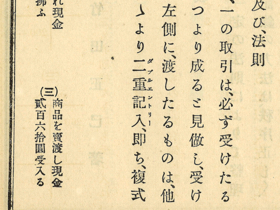 及び、法則
、一の取引は、必ず受けたる
つより成ると見做し、受け
左側に渡したるものは、他
〻より二重記入、即ち、複式
ダブエンリー
(三)
商品を賣渡し現金
貳百六拾圓受入る
れ現金
拂ふ